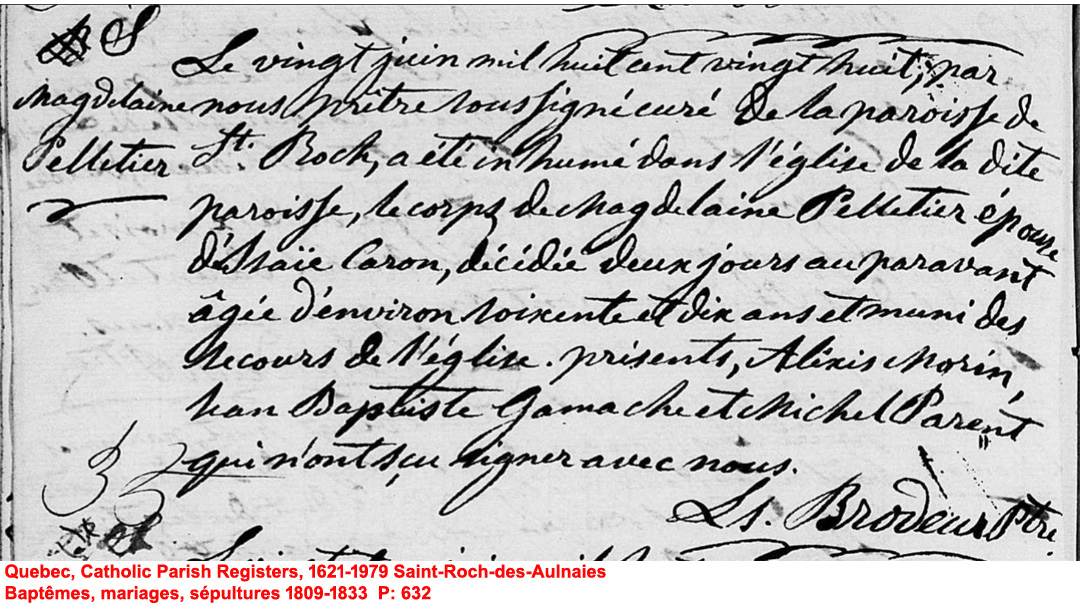 S
Magdelaine
Pelletier
Le vingt juin mil huit cent vingt huit, par
nous prêtre soussigné curé de la paroisse de
St. Roch, a été inhumé dans l'église de la dite
paroisse, le corps de Magdelaine Pelletier épouse
d'Isaïe Caron, décidée deux jours au paravant
âgée d'environ soixente et dix ans et muni des
secours de l'église. présents, Aléxis Morin,
Jean Baptiste Gamache et Michel Parent
qui n'ont sçu signer avec nous.
Ls. Brodeur Ptre
S
Quebec, Catholic Parish Registers, 1621-1979 Saint-Roch-des-Aulnaies
Baptêmes, mariages, sépultures 1809-1833 P: 632